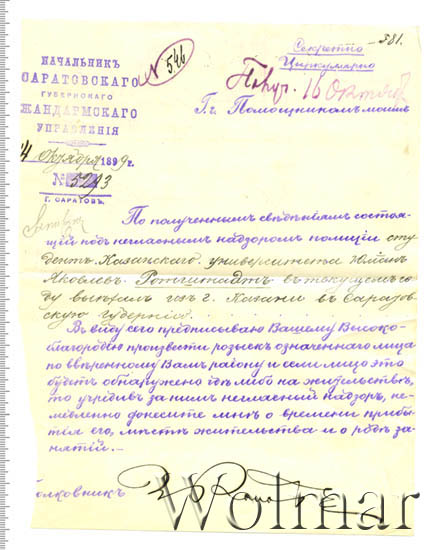 581.
Секретно
Циркулярно
№ 546
НАЧАЛЬНИКЪ
САРАТОВСКАГО
ГУБЕРНСКАГО
ЖАНДАРМСКАГО
УПРАВЛЕНІЯ
4 Октября 1899 г.
№ 5293
Г. САРАТОВЪ.
16 Октяб
Г.г. Помощникамъ моимъ
По полученнымъ свѣдѣніямъ состоя-
щій подъ негласнымъ надзоромъ полиціи сту
дентъ Казанскаго университета Юліанъ
Яковлевъ Ротштадтъ въ текущемъ го-
ду выѣхалъ изъ г. Казани въ Саратов-
скую губернію.
Въ виду сего предписываю Вашему Высоко-
благородію произвести розыскъ означеннаго лица
по ввѣренному Вамъ району и если лицо это
будетъ обнаружено гдѣ либо на жительствѣ,
то учредивъ за нимъ негласный надзоръ, не-
медленно донесите мнѣ о времени прибы
тія его, мѣстѣ жительства и о родѣ за-
нятій.
олковникъ
Wolmar